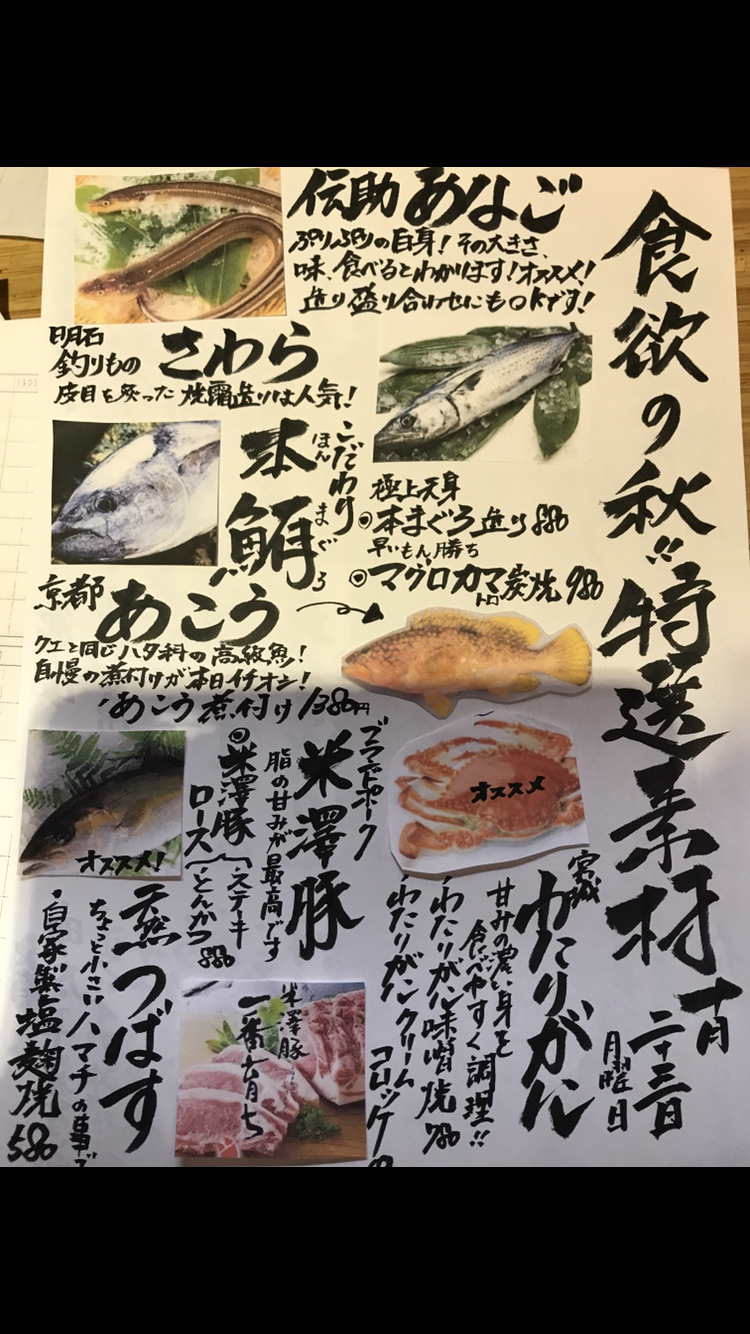 食欲の秋!!特選素材
十月
二十三日
月曜日
伝助 あなご
ぷりぷりの白身!その大きさ、
味、食べるとわかります!オススメ!
造り盛り合わせにもOKです!
明石
釣りもの さわら
皮目を炙った 焼霜造りは人気!
こだわり
本鮪
ほん まぐろ
極上天身
◎本まぐろ造り 880
早いもん勝ち
◎マグロカマ炭焼 980
トロ
京都 あこう
クエと同じハタ科の高級魚!
自慢の煮付けが本日イチオシ!
・あこう煮付け 1380円
ブランドポーク
米澤豚
脂の甘みが最高です
◎米澤豚
ロース
・ステーキ
・とんかつ
880
米澤豚
一番育ち
オススメ
宮城
わたりがに
甘みの濃い身を
食べやすく調理!!
・わたりがに味噌焼 780
・わたりがにクリーム
コロッケ
オススメ!
天然つばす
ちょっと小さいハマチの事で
・自家製塩麹焼 580